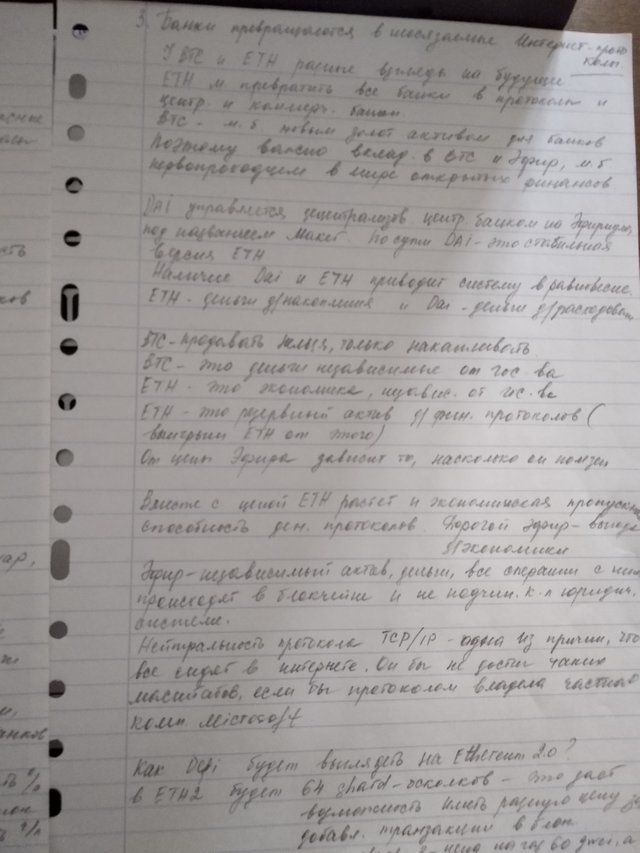 3. Банки превращаются в осязаемые Интернет-прото
колы
У BTC и ETH разные взгляды на будущее
ETH м. превратить все банки в протоколы и
центр. и коммерч. банки
BTC - м.б. новым золот активом для банков
Поэтому важно вклад. в BTC и Эфир, м.б
первопроходцем в мире открытых финансов
DAI управляется децентрализов центр. банком на Эфириуме
под названием Макет. По сути DAI - это стабильная
версия ETH
Наличие Dai и ETH приводит систему в равновесие.
ETH - деньги д/накопления и Dai - деньги д/расходован
BTC - продавать нельзя, только накапливать
BTC - это деньги независимые от гос-ва
ETH - это экономика, независ. от гос-ва
ETH - это резервный актив д/фин. протоколов (
выигрыш ETH от этого)
От цены Эфира зависит то, насколько он полезен
Вместе с ценой ETH растет и экономическая пропускная
способность ден. протоколов. Дорогой Эфир - выгода
д/экономики
Эфир - независимый актив, деньги, все операции с ним
происходят в блокчейне и не подчин. к-л юридич.
системе.
Нейтральность протокола TCP/IP - одна из причин, что
все сидят в интернете. Он бы не достиг таких
масштабов, если бы протоколом владела частная
комп. Microsoft
Как Defi будет выглядеть на Ethereum 2.0?
в ETH2 будет 64 shard-осколков - это дает
возможность иметь разную цену за
добавл. транзакции в блок
цена на газ 60 джей, а